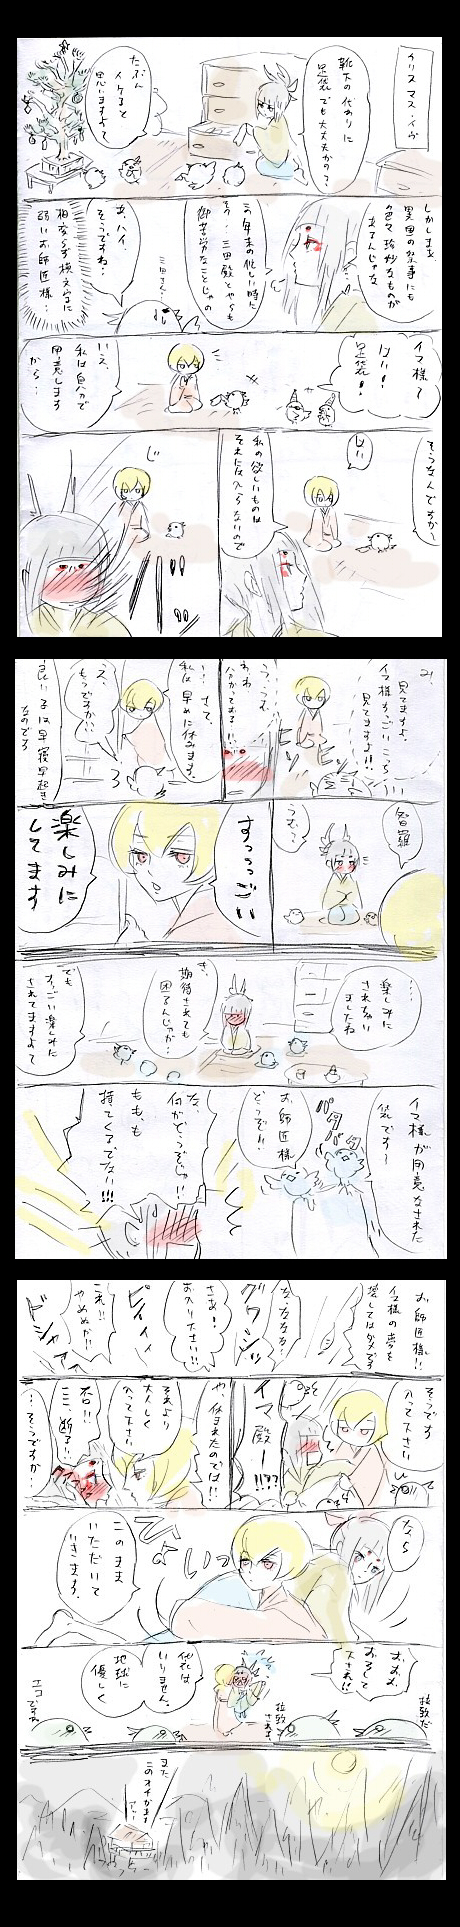 クリスマス・イヴ
靴下の代わりに
足袋でも大丈夫かの?
たぶん
イケると
思いますよて
しかしまあ
異国の祭事にも
色々珍妙なものが
あるんじゃな
この年末の忙しい時に
その…三田殿とやらも
御苦労なことじゃの
三田さん…
あ、ハイ、
そうですね…
相変らず横文字に
弱いお師匠様…
イマ様〜
はい!
足袋!
いえ、
私は自分で
用意します
から…
そうなんですか〜
じぃ
私の欲しいものは
それには入らないので
じ
み、
見てますよ、
イマ様すっごいこっち
見てますよ!!
う…うむ、
わわ
分かっておる!!
…さて、
私は早めに休みます。
え、
もうですか…
良いコは早寝早起き
なのです
智羅
うむ…
すっっっごい
楽しみに
してます
……
楽しみに
されちゃい
ましたね
き、
期待されても
困るんじゃが…
でも
すっごい楽しみに
されてますよて
イマ様が用意なされた
袋です〜
パタパタ
お師匠様
どうぞ!!
な、
何がどうぞじゃ!!
もも、も
持てくるでない!!!
お師匠様!!
イマ様の夢を
壊してはダメです
な、ななな?
グワシッ
さぁ!
お入り下さい!!
ピィィィ
これ!!
やめぬか!!
ドシャァ
そうです
入って下さい
イマ殿ー!!??
や、休まれたのでは!!
それより
大人しく
入って下さい
否!!
ここ、断る!!
…そうですか…
なら
ひょいっ
このまま
いただいて
いきます。
おおお
おろして
下され!!
拉致だ
拉致されます
袋は
いりません。
地球に
優しく
エコですね
また
このオチかます